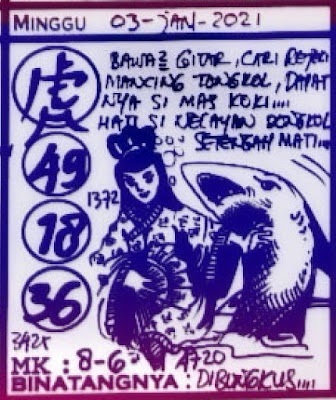 MINGGU 03-JAN-2021
BAWA2 GITAR, CARI
MANCING TONGKOL, DAPAT
NYA SI MAS KOKI....
HATI SI NELAYAN DONGKOL
SETENGAH MATI....
虎
49
1372
18
36
MK : 8-6
BINATANGNYA : DIBUNGKUS....